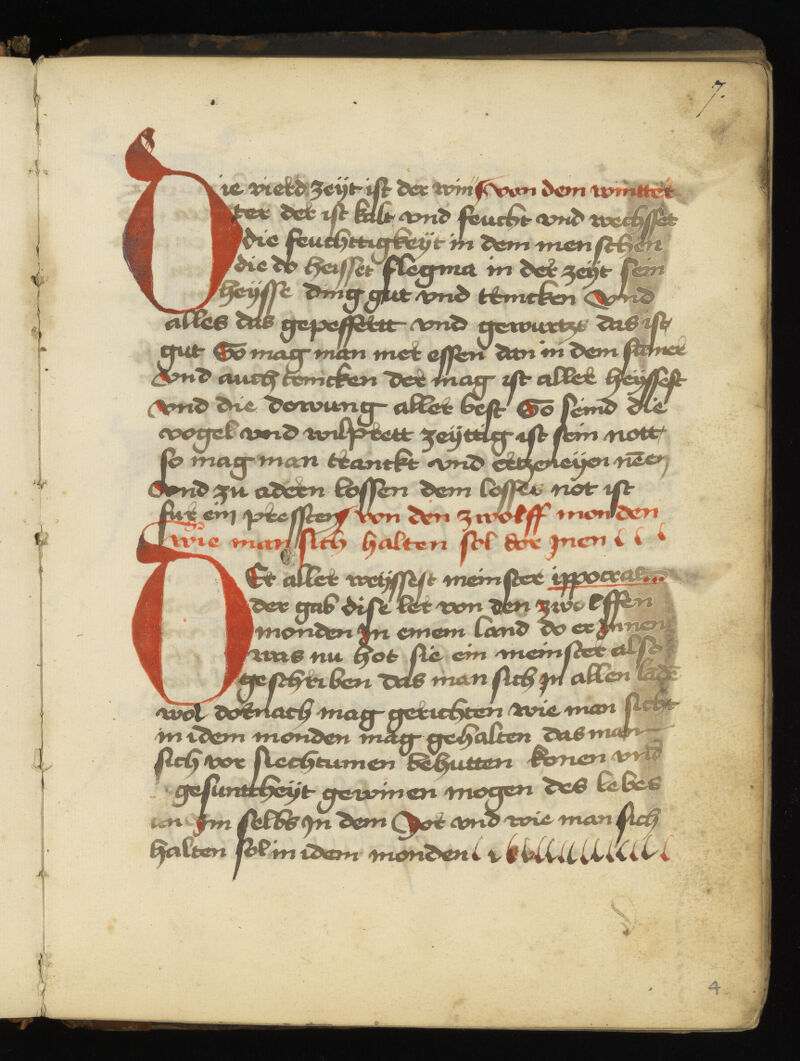 7.
Die vierd zeyt ist der win von dem wintter
ter der ist kalt vnd feucht vnd wechsset
die feuchttigkeyt in dem menschen
die do heisset flegma in der zeyt sein
heysse ding gut vnd trincken Vnd
alles das gepeffertt vnd gewurtzt das ist
gut So mag man mer essen dan in dem sumer
Vnd auch trincken der mag ist aller heyssest
vnd die dewung aller best So seind die
vogel vnd wilprett zeyttig ist sein nott
so mag man tranckt vnd ertzeneyen nēen
Vnd zu adern lossen dem lossen not ist
fur ein pressten von den zwolff monden
wie man sich halten sol dor jnen
Der aller weyssest meinster ippocra
der gab dise ler von den zwolffen
monden jn einem land do er jnnen
was nu hot sie ein meinster also
geschriben das man sich jn allen ladē
wol dornach mag gerichten wie man sich
in idem monden mag gehalten das man
sich vor siechtumen behutten konen vnd
gesuntheyt gewinen mogen des lebes
an jm selbs jn dem Jor vnd wie man sich
halten sol in idem monden
4